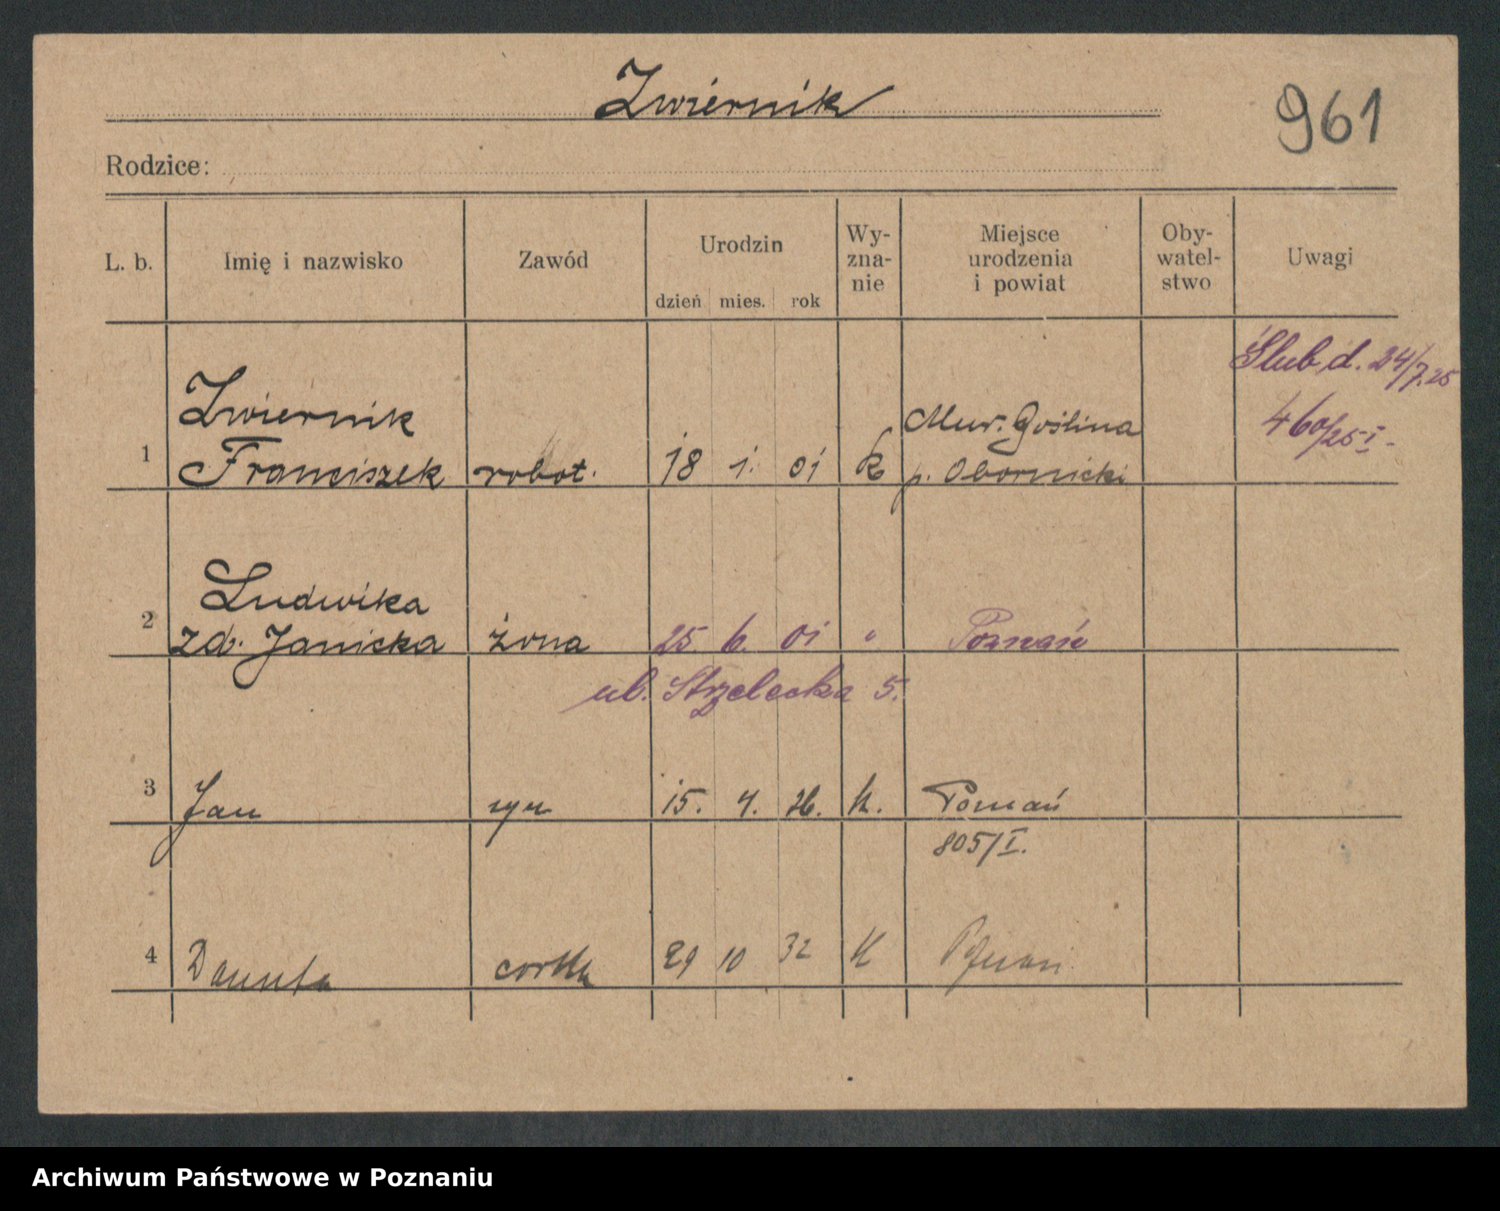 Zwiernik
961
Rodzice:
L. b. Imię i nazwisko Zawód Urodzin dzień mies. rok Wy-zna-nie Miejsce urodzenia i powiat Oby-watel-stwo Uwagi
Ślub d. 24/7.25
460/25 I-
Zwiernik Mur. Goślina
1 Franciszek robot. 18 1. 01 k p. Obornicki
Ludwika
2 zd. Janicka żona 25 6. 01 " Poznań
ul. Strzelecka 5.
3 Jan syn 15. 4. 26. k. Poznań
805/I.
4 Danuta córka 29 10 32 K Poznań
Archiwum Państwowe w Poznaniu